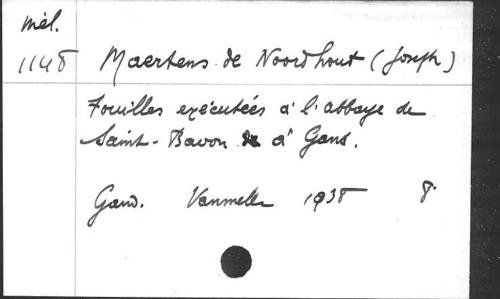 Mél.
1148 Maertens de Noordhout (Joseph)
Fouilles exécutées à l'abbaye de
Saint-Bavon à Gand.
Gand. Vanmelle 1938 8°